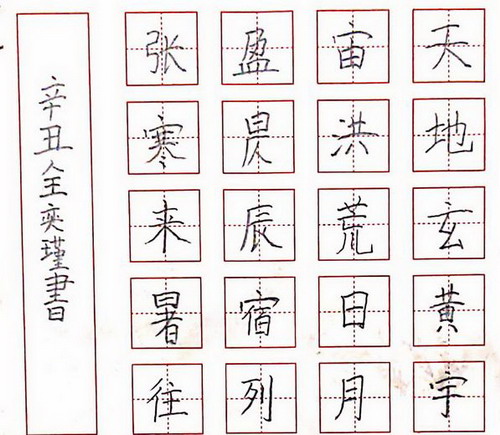 天地玄黄宇
宙洪荒日月
盈昃辰宿列
张寒来暑往
辛丑全奕瑾書